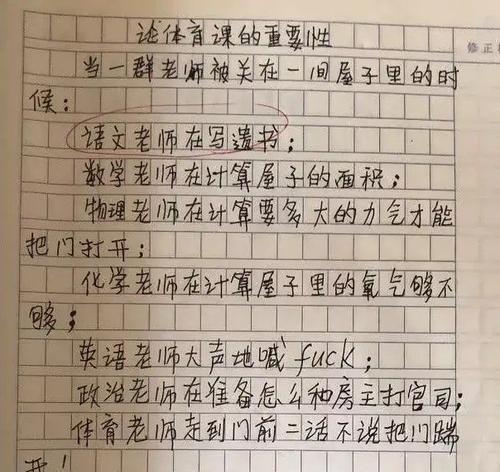 论体育课的重要性
当一群老师被关在一间屋子里的时
候：
语文老师在写遗书；
数学老师在计算屋子的面积；
物理老师在计算要多大的力气才能
把门打开；
化学老师在计算屋子里的氧气够不
够；
英语老师大声地喊fuck；
政治老师在准备怎么和房主打官司；
体育老师走到门前二话不说把门踹
开！
修正